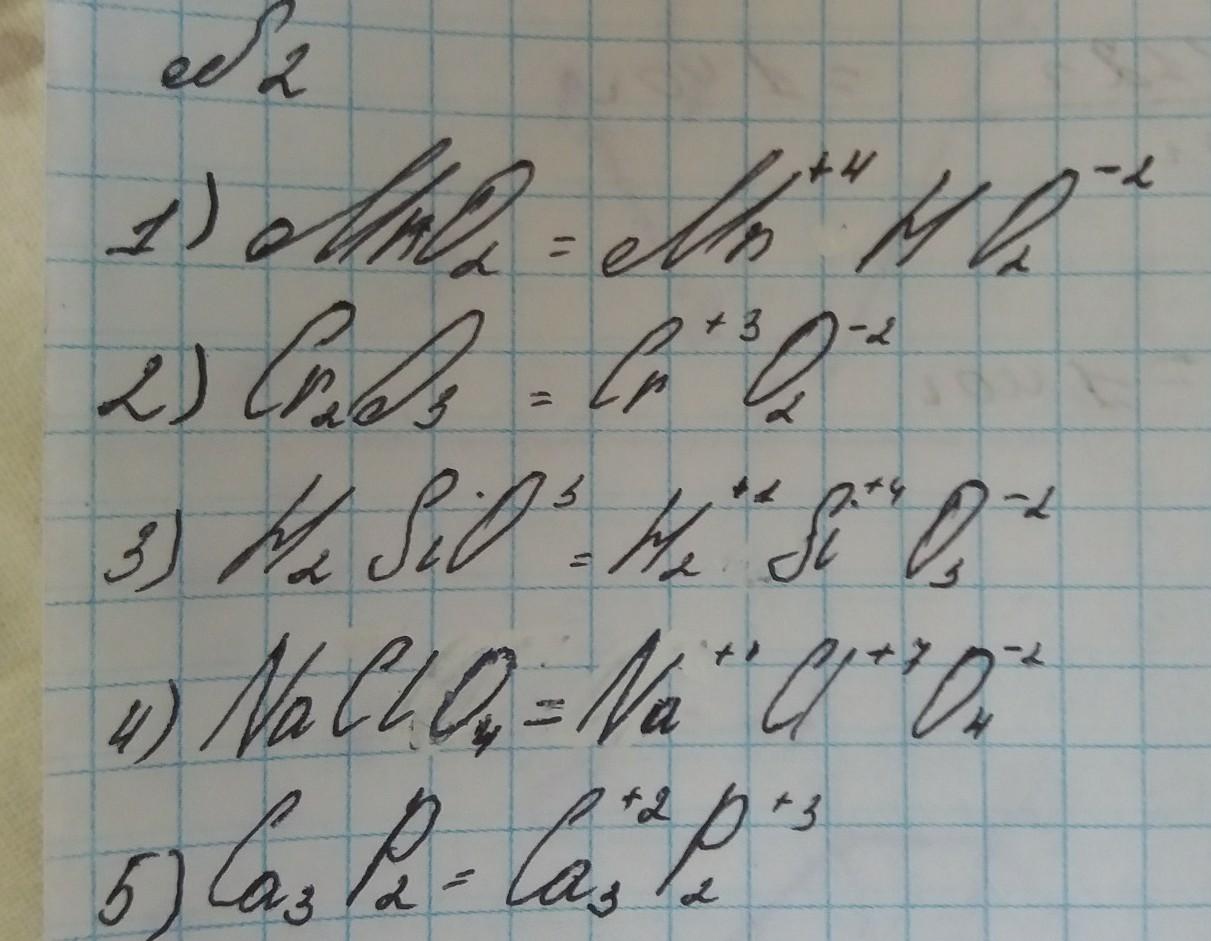 №2
1) MnO₂ = Mn⁺⁴ И O₂⁻²
2) Cr₂O₃ = Cr⁺³ O₂⁻²
3) H₂SiO³ = H₂⁺¹ Si⁺⁴ O₃⁻²
4) NaClO₄ = Na⁺¹ Cl⁺⁷ O₄⁻²
5) Ca₃P₂ = Ca₃⁺² P₂⁺³